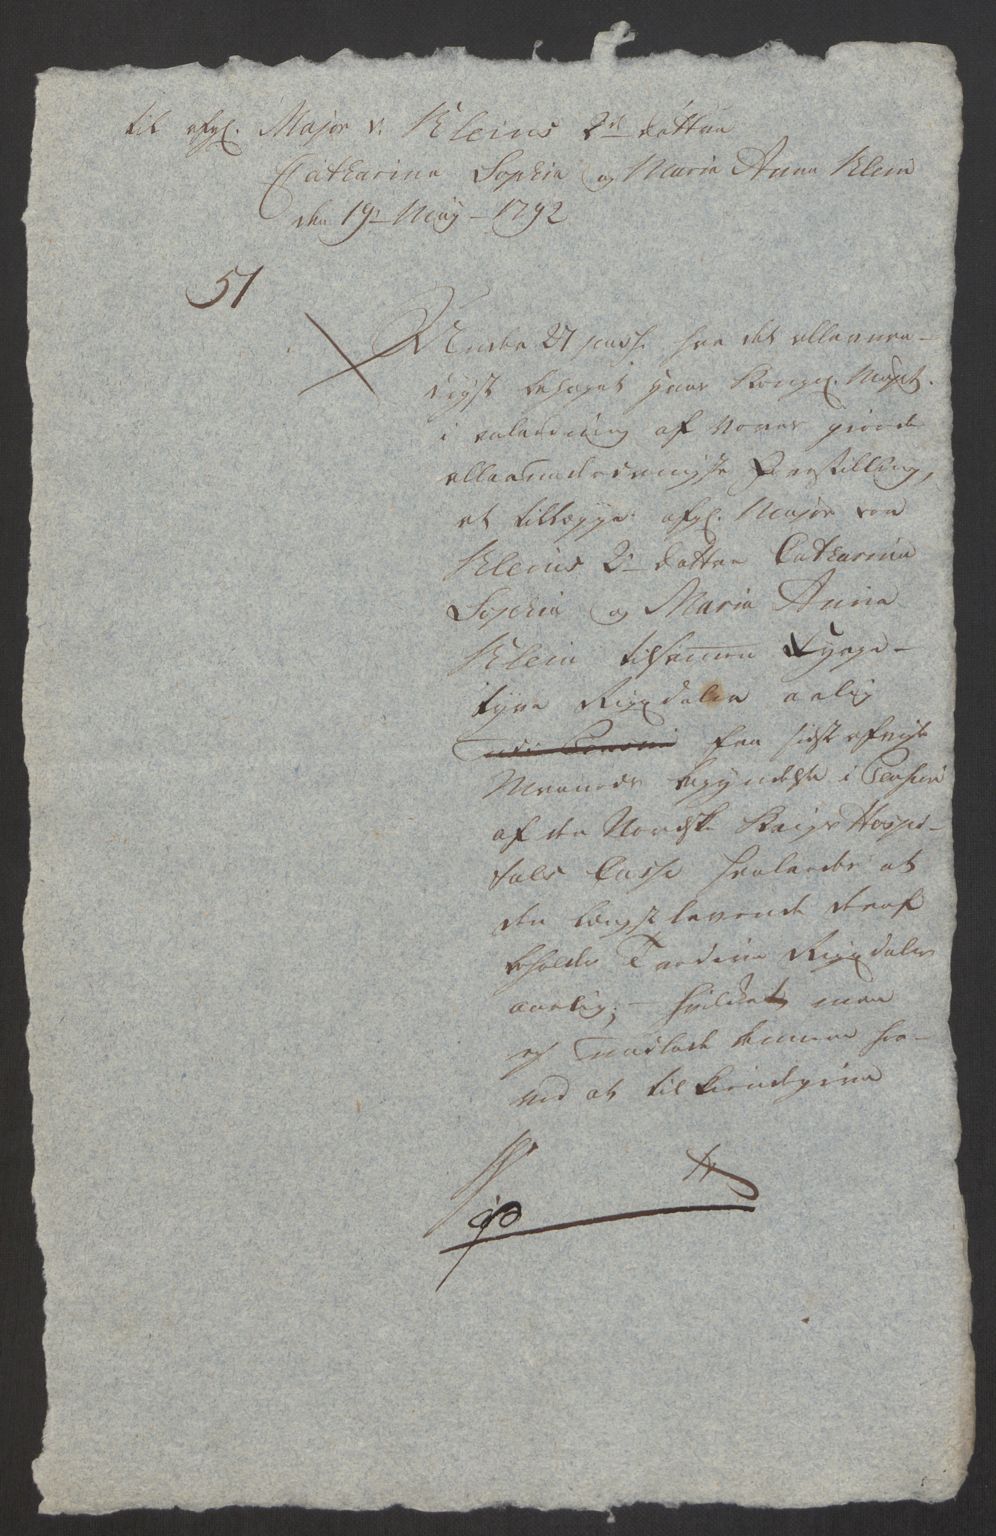 til afg. Major v. Kleins 2de døttre
Catharina Sophia og Maria Anna Klein
den 19de Maij 1792
51
Under 27 pass. har det allernaa-
digst behaget Hans Kongel. Mayt.
i anledning af vores giorde
allerunderdanigste Forestilling,
at tillægge afg. Major von
Kleins 2de døttre Catharina
Sophia og Maria Anna
Klein tilsammen Tyge-
tyve Rigsdaler aarlig
fra sidst afvigte
Maaneds begyndelse i Pension
af den Norske Krigs Hospi-
tals Casse saaledes at
den længst levende deraf
beholder Tredive Rigsdaler
aarlig; – hvilket man
ej undlade dennem her-
ved at tilkiendegive